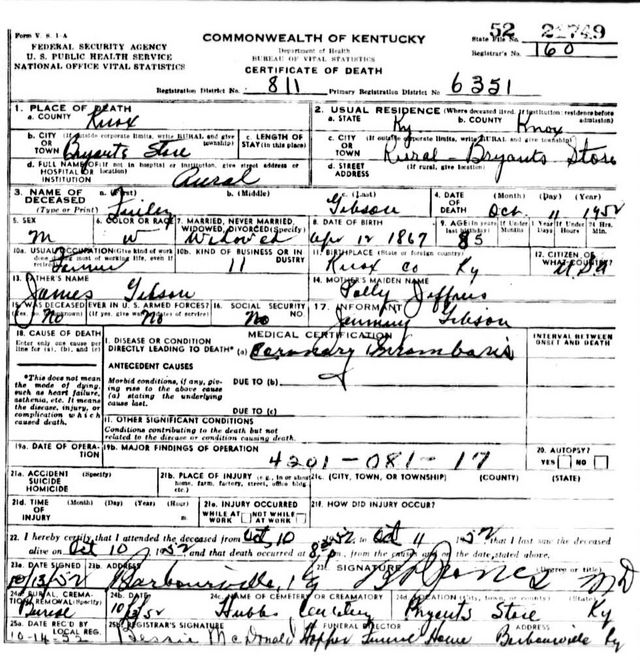 Form V. S. 1-A
COMMONWEALTH OF KENTUCKY
52 21749
State File No.
FEDERAL SECURITY AGENCY
Department of Health
Registrar's No. 160
U. S. PUBLIC HEALTH SERVICE
BUREAU OF VITAL STATISTICS
NATIONAL OFFICE VITAL STATISTICS
CERTIFICATE OF DEATH
Registration District No. 811 Primary Registration District No. 6351
1. PLACE OF DEATH
a. COUNTY Knox
2. USUAL RESIDENCE (Where deceased lived. If institution: residence before admission)
a. STATE Ky b. COUNTY Knox
b. CITY (If outside corporate limits, write RURAL and give township)
OR TOWN Bryants Store
c. LENGTH OF STAY (in this place)
c. CITY (If outside corporate limits, write RURAL and give township)
OR TOWN Rural - Bryants Store
d. FULL NAME OF (If not in hospital or institution, give street address or location)
HOSPITAL OR INSTITUTION Rural
d. STREET ADDRESS (If rural, give location)
3. NAME OF DECEASED (Type or Print)
a. (First) b. (Middle) c. (Last) Gibson
4. DATE OF DEATH (Month) (Day) (Year)
Oct 11 1952
5. SEX M
6. COLOR OR RACE W
7. MARRIED, NEVER MARRIED, WIDOWED, DIVORCED (Specify) Widowed
8. DATE OF BIRTH Apr 12 1867
9. AGE (In years last birthday) 85
If Under 1 Year If Under 24 Hrs.
10a. USUAL OCCUPATION (Give kind of work done during most of working life, even if retired) Farmer
10b. KIND OF BUSINESS OR INDUSTRY 11
11. BIRTHPLACE (State or foreign country) Knox Co Ky
12. CITIZEN OF WHAT COUNTRY? USA
13. FATHER'S NAME
James Gibson
14. MOTHER'S MAIDEN NAME
15. WAS DECEASED EVER IN U. S. ARMED FORCES? No No
16. SOCIAL SECURITY NO. No
17. INFORMANT Gibson
18. CAUSE OF DEATH
Enter only one cause per line for (a), (b), and (c)
MEDICAL CERTIFICATION
INTERVAL BETWEEN ONSET AND DEATH
I. DISEASE OR CONDITION DIRECTLY LEADING TO DEATH* (a) Coronary Thrombosis
*This does not mean the mode of dying, such as heart failure, asthenia, etc. It means the disease, injury, or complication which caused death.
ANTECEDENT CAUSES
Morbid conditions, if any, giving rise to the above cause (a) stating the underlying cause last.
DUE TO (b)
DUE TO (c)
II. OTHER SIGNIFICANT CONDITIONS
Conditions contributing to the death but not related to the disease or condition causing death.
19a. DATE OF OPERATION
19b. MAJOR FINDINGS OF OPERATION
4201-081-17
20. AUTOPSY?
YES NO
21a. ACCIDENT SUICIDE HOMICIDE (Specify)
21b. PLACE OF INJURY (e.g., in or about home, farm, factory, street, office bldg., etc.)
21c. (CITY, TOWN, OR TOWNSHIP) (COUNTY) (STATE)
21d. TIME OF INJURY (Month) (Day) (Year) (Hour) m
21e. INJURY OCCURRED
WHILE AT WORK NOT WHILE AT WORK
21f. HOW DID INJURY OCCUR?
22. I hereby certify that I attended the deceased from Oct 10 1952 to Oct 11 1952 that I last saw the deceased
alive on Oct 10 1952, and that death occurred at m, from the causes and on the date stated above.
23a. DATE SIGNED 10/13/52
23b. ADDRESS Barbourville, Ky
23c. SIGNATURE Jones (Degree or title) MD
24a. BURIAL, CREMATION, REMOVAL (Specify) Burial
24b. DATE
24c. NAME OF CEMETERY OR CREMATORY Hubbs Cemetery
24d. LOCATION (City, town, or county) (State) Bryants Store Ky
25a. DATE REC'D BY LOCAL REG. 10-14-52
25b. REGISTRAR'S SIGNATURE Bessie McDonald
FUNERAL DIRECTOR Hopper Funeral Home
ADDRESS Barbourville Ky